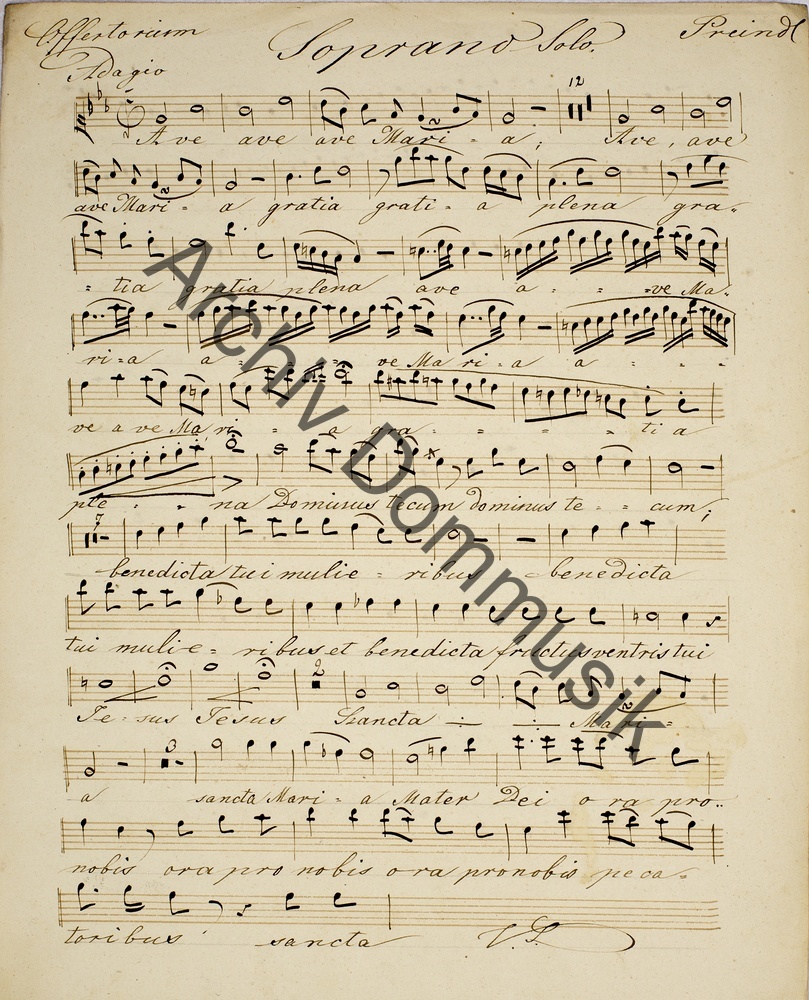 Offertorium Soprano Solo. Preindl
Adagio
12
Ave ave ave Mari - a; Ave, ave
ave Mari - a gratia grati - a plena gra -
- tia gratia plena ave a - - ve Ma -
ri - a a - - - ve Mari - a a - - -
ve ave Mari - a gra - - - - tia
ple - - na Dominus tecum dominus te - - cum;
7
benedicta tui mulie - ribus benedicta
tui mulie - ribus et benedicta fructus ventris tui
2
Jesus Jesus Sancta Mari -
3
a sancta Mari - a Mater Dei ora pro -
nobis ora pro nobis ora pro nobis peca -
toribus sancta V.S.
Archiv Dommusik